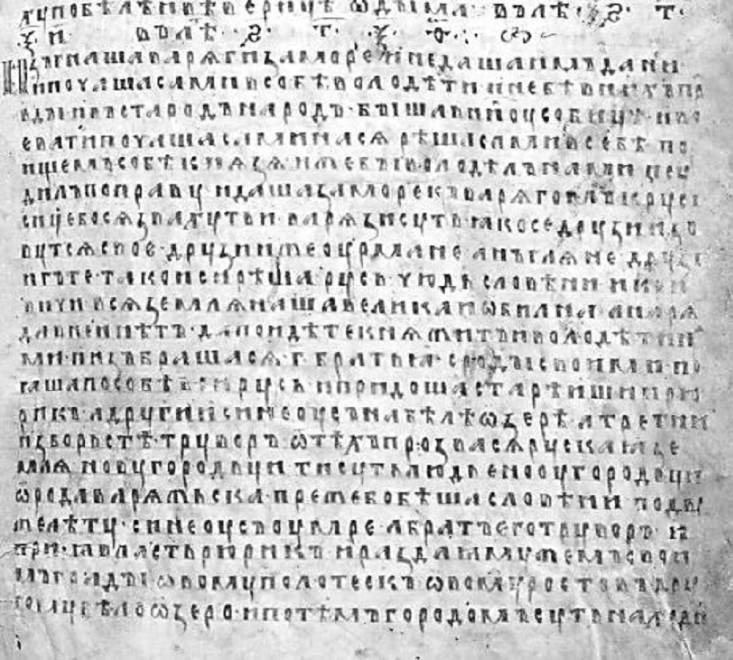 ху по бѣлѣи вѣверицѣ ѿ дъіма · В лѣт · ҂ѕ҃ · т҃ ·
ѯ҃ · и҃ · В лѣт · ҂ѕ҃ · т҃ · ѯ҃ · ѳ҃ ·:·
изъгнаша варѧги за море и не даша имъ дани
и почаша сами в собѣ володѣти и не бѣ в нихъ пра
вдъі и въста родъ на родъ · бъіша в них оусобицѣ · и вое
вати почаша сами на сѧ рѣша сами в себѣ · по
ищемъ собѣ кнѧзѧ иже бъі володѣлъ нами и сꙋ
дилъ по правꙋ идаша за море къ варѧгомъ к рꙋси
сице бо сѧ звахꙋть и · варѧзи сꙋть ꙗко се дрꙋзии зъ
вꙋтсѧ свое · дрꙋзии же оурмане · анъглѧне · дрꙋзи
и гъте · тако и си рѣша рꙋсь · чюдь словѣни и кри
вичи всѧ землѧ наша велика и ѡбилна · а нарѧ
да в неи нѣтъ · да поидѣте кнѧжитъ и володѣти на
ми · и изъбрашасѧ · г҃ · братьꙗ · с родъі своими · по
ꙗша по собѣ всю рꙋсь · и придоша старѣишии рю
рикъ · а дрꙋгии синеоусъ на бѣлѣѡзерѣ · а третии
изборьстѣ · трꙋворъ · ѿ тѣхъ прозвасѧ рꙋскаꙗ зе
млѧ новꙋгородьци ти сꙋть людье нооугородьци
ѿ рода варѧжьска · преже бо бѣша словѣни · по двꙋ
же лѣтꙋ · синеоусъ оумре · а братъ его трꙋворъ · и
приꙗ власть рюрикъ · и раздаꙗ мꙋжемъ свои
мъ градъі · ѡвомꙋ полотескъ ѡвомꙋ ростовъ дрꙋ
гомꙋ бѣлоѡзеро · и по тѣмъ городомъ сꙋть находн